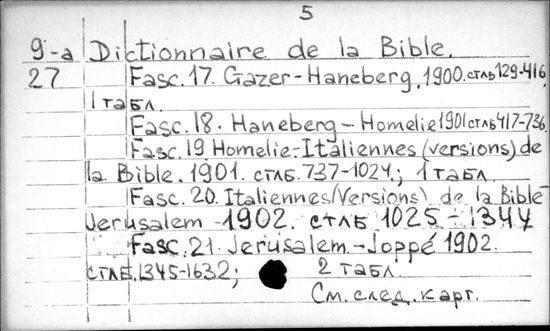 5
9-a Dictionnaire de la Bible.
27 Fasc. 17. Gazer-Haneberg, 1900. стлб 129-416,
1 табл.
Fasc. 18. Haneberg - Homelie 1901 стлб 417-736,
Fasc. 19 Homelie-Italiennes (versions) de
la Bible. 1901. стлб. 737-1024; 1 табл.
Fasc. 20. Italiennes (Versions) de la Bible -
Jerusalem 1902. стлб 1025-1344
Fasc. 21. Jerusalem - Joppé 1902.
стлб. 1345-1632; 2 табл.
См. след. карт.